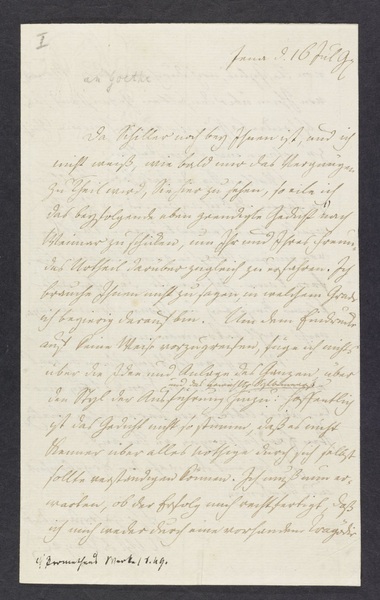 I
Jena d. 16 Jul 97
an Goethe
Da Schiller noch bey Ihnen ist, und ich
nicht weiß, wie bald mir das Vergnügen
zu Theil wird, Sie hier zu sehen, so eile ich
das beyfolgende eben geendigte Gedicht 1) nach
Weimar zu schicken, um Ihr und Ihres Freun-
des Urtheil darüber zugleich zu erfahren. Ich
brauche Ihnen nicht zu sagen, in welchem Grade
ich begierig darauf bin. Um dem Eindrucke
auf keine Weise vorzugreifen, füge ich nichts
über die Idee und Anlage des Ganzen, oder
und das gewählte Sylbenmaß
den Styl der Ausführung hinzu: hoffentlich
ist das Gedicht nicht so stumm, daß es nicht
Kenner über alles nöthige durch sich selbst
sollte verständigen können. Ich muß nun er-
warten, ob der Erfolg mich rechtfertigt, daß
ich mich weder durch eine vorhandene Tragödie
1) Prometheus Werke I S. 49.